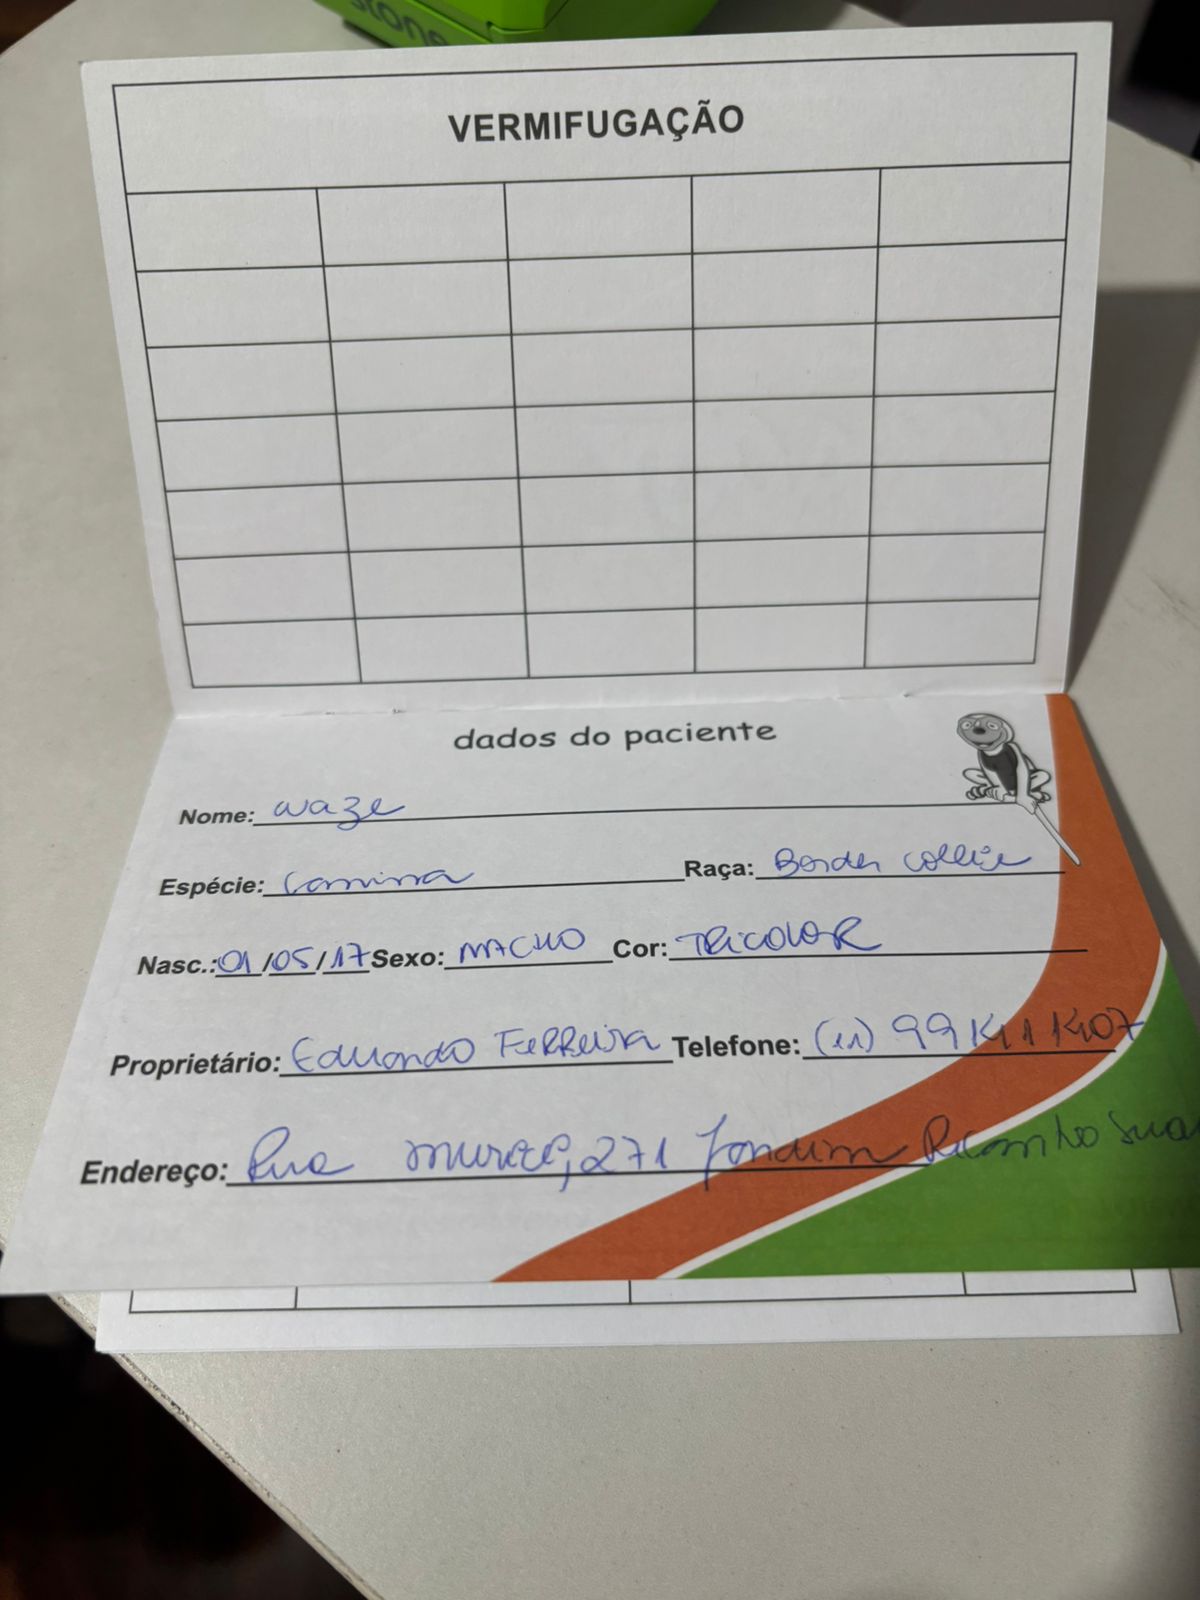 stone
VERMIFUGAÇÃO
dados do paciente
Nome: Waze
Espécie: Canina Raça: Border Collie
Nasc.: 01/05/17 Sexo: MACHO Cor: TRICOLOR
Proprietário: Eduardo Ferreira Telefone: (11) 99141 1407
Endereço: Rua 271 Jardim